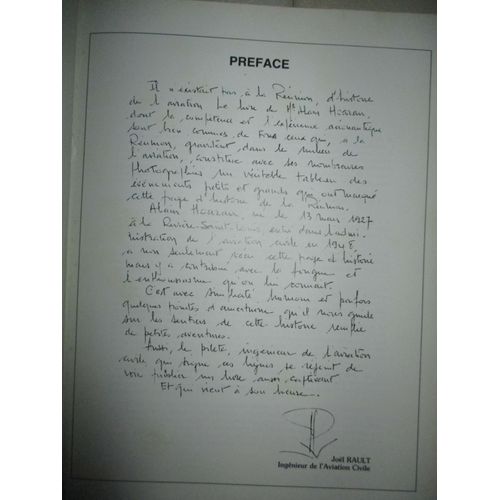 PREFACE
Il n'existait pas, à la Réunion, d'histoire
de l'aviation. Le livre de Mr Alain
dont la compétence et l'expérience aéronautique
sont bien connues de tous ceux qui, à la
Réunion, gravitent dans le milieu de
l'aviation, constitue avec ses nombreuses
photographies un véritable tableau des
évènements petits et grands qui ont marqué
cette page d'histoire de la Réunion.
Alain, né le 13 mars 1927
à la Rivière-Saint-Louis, entré dans l'admi-
nistration de l'aviation civile en 1948,
a non seulement vécu cette page d'histoire
mais y a contribué avec la fougue et
l'enthousiasme qu'on lui connait.
C'est avec simplicité, humour et parfois
quelques pointes d'amertume qu'il nous guide
sur les sentiers de cette histoire remplie
de petites aventures.
Aussi, le pilote, ingénieur de l'aviation
civile qui signe ces lignes se réjouit de
voir publier un livre aussi captivant
Et qui vient à son heure.
Joël RAULT
Ingénieur de l'Aviation Civile